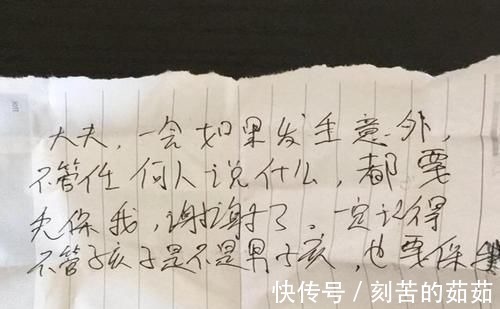 大夫，一会如果发生意外，
不管任何人说什么，都要
先保我，谢谢了。一定记得
不管孩子是不是男孩，也要保
快传号 / 刻苦的茹茹